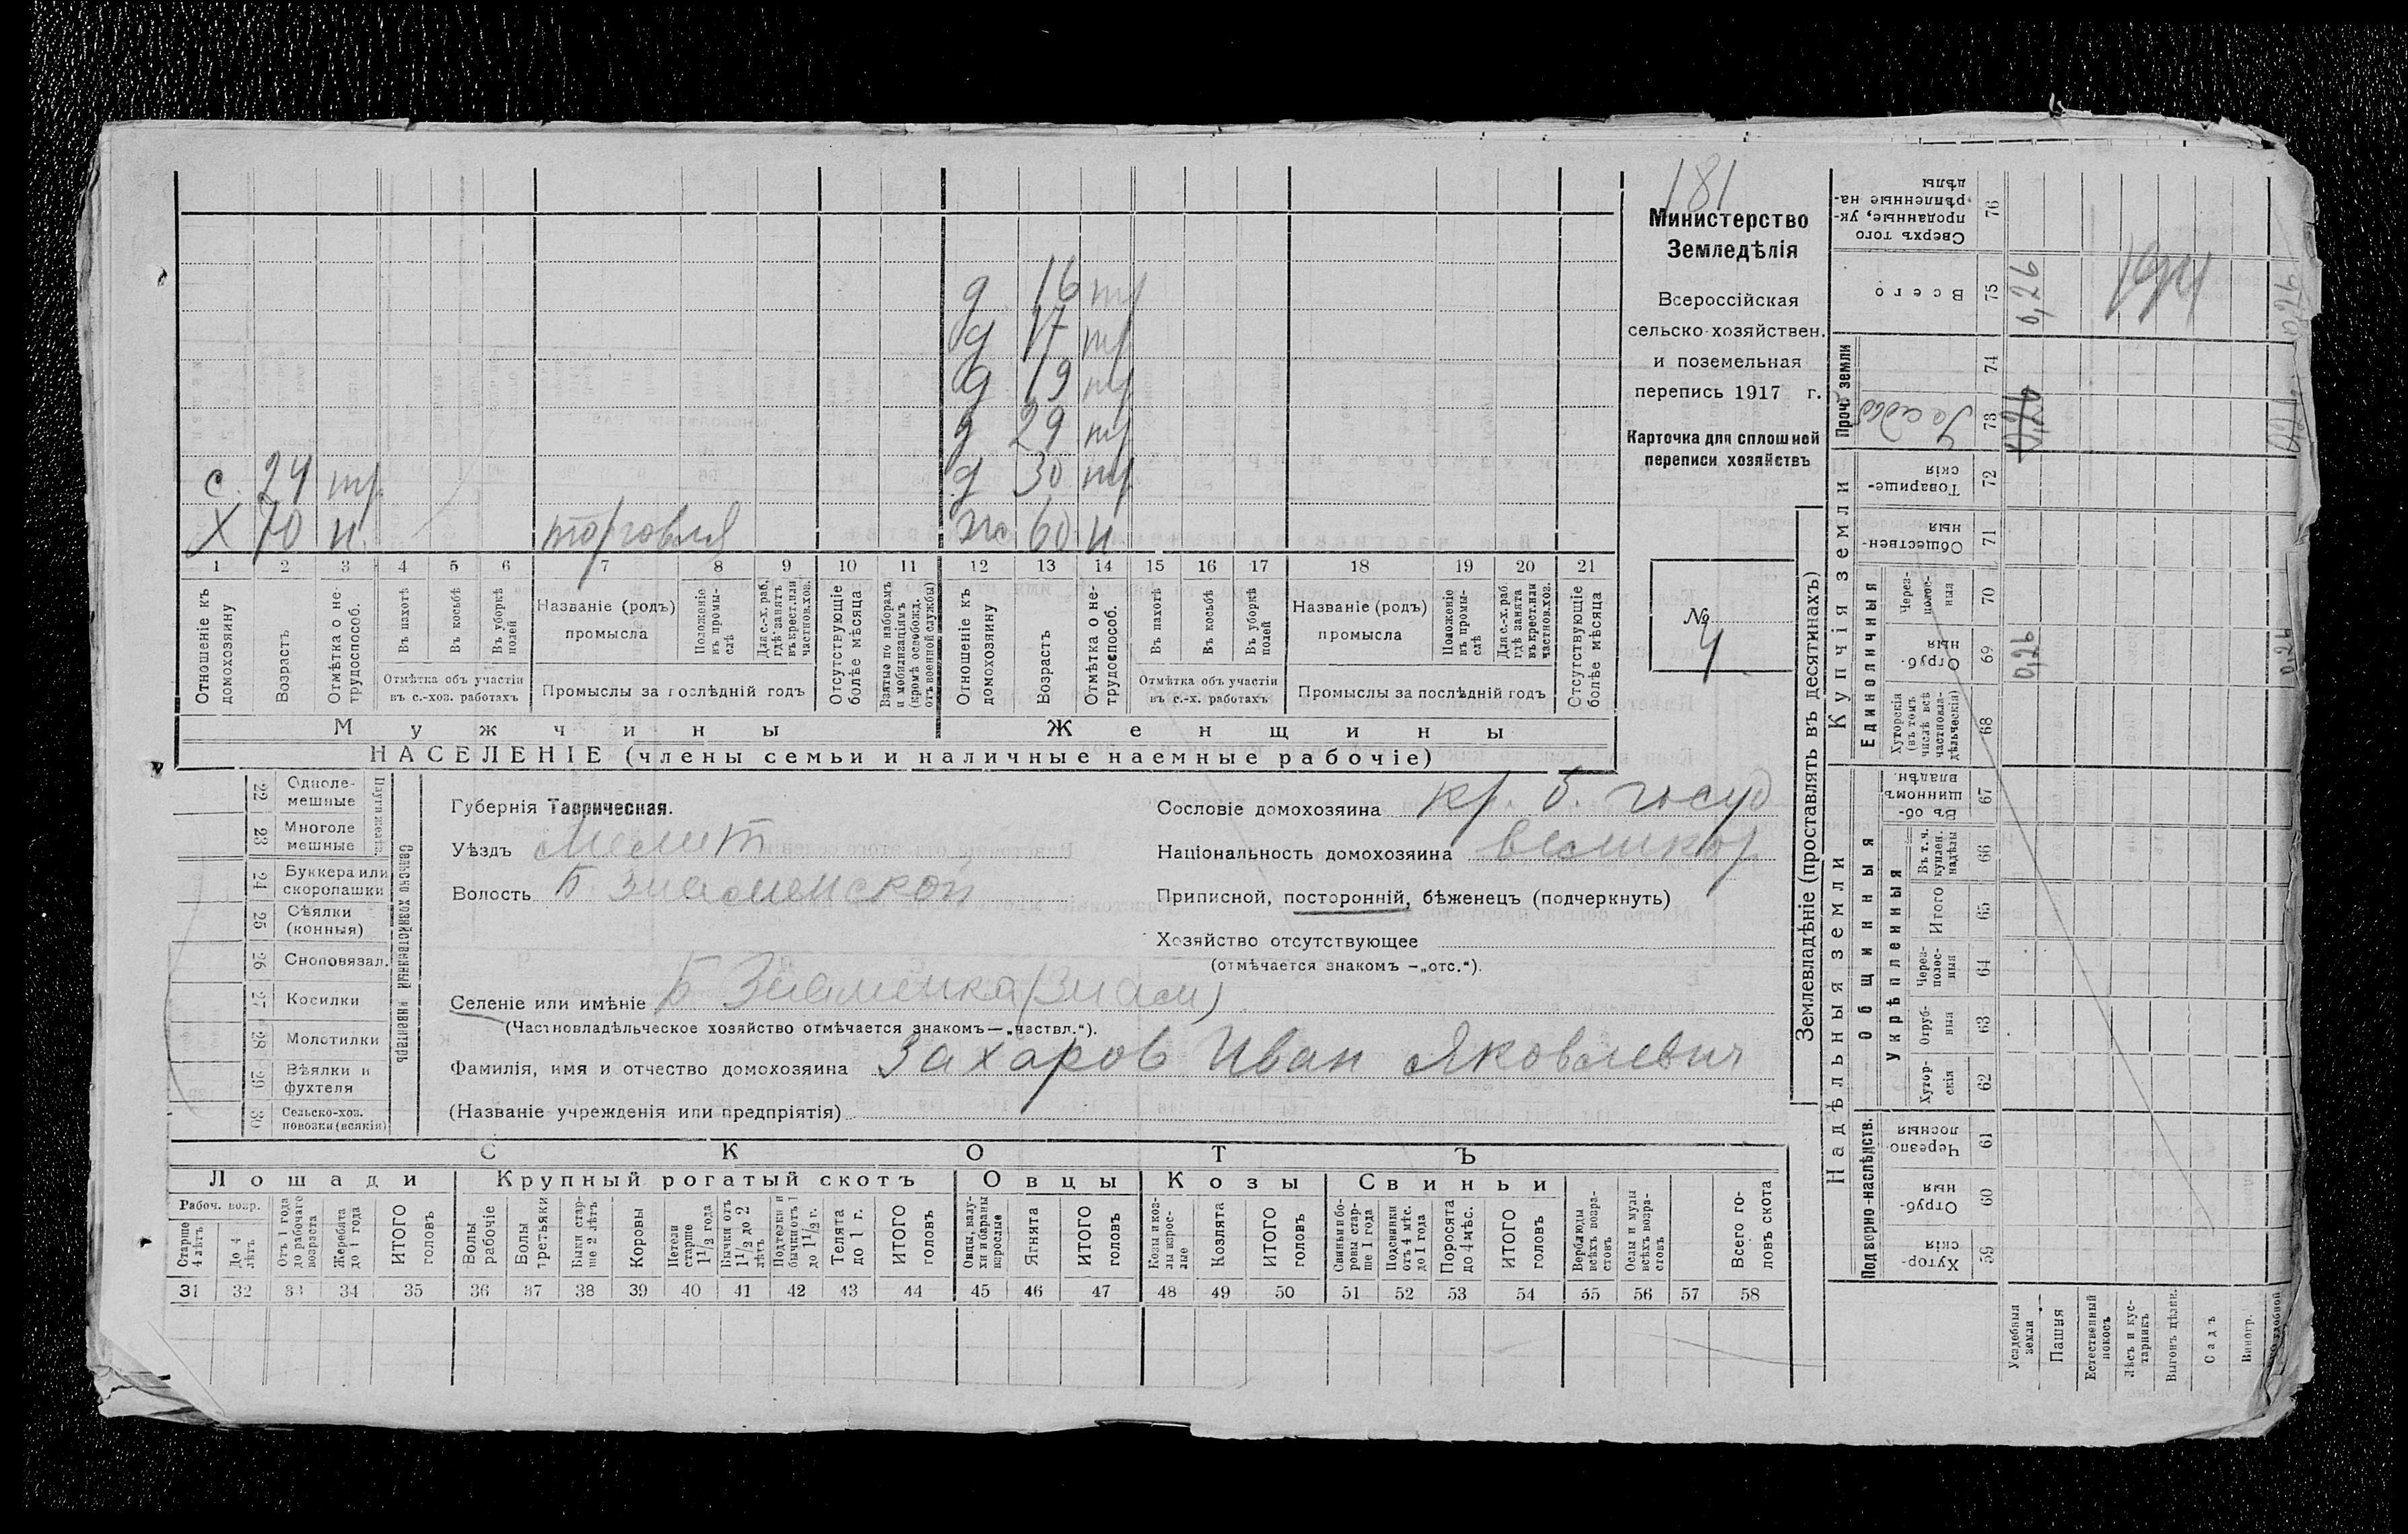 181
Министерство
Земледѣлія
Всероссійская
сельско-хозяйствен.
и поземельная
перепись 1917 г.
Карточка для сплошной
переписи хозяйствъ
№
4
д 16 тр
д 17 тр
д 19 тр
д 29 тр
с 24 тр. д 30 тр
Х 70 н. торговля 60 н
1 2 3 4 5 6 7 8 9 10 11 12 13 14 15 16 17 18 19 20 21
Отношеніе къ домохозяину
Возрастъ
Отмѣтка о не-трудоспособ.
Въ пахотѣ
Въ косьбѣ
Въ уборкѣ полей
Отмѣтка объ участіи въ с.-хоз. работахъ
Названіе (родъ) промысла
Положеніе въ промы-слѣ
Для с.-х. раб. гдѣ занятъ въ крест. или частнов. хоз.
Промыслы за послѣдній годъ
Отсутствующіе болѣе мѣсяца
Взятые по наборамъ и мобилизаціямъ (кромѣ освобожд. отъ военной службы)
Отношеніе къ домохозяину
Возрастъ
Отмѣтка о не-трудоспособ.
Въ пахотѣ
Въ косьбѣ
Въ уборкѣ полей
Отмѣтка объ участіи въ с.-х. работахъ
Названіе (родъ) промысла
Положеніе въ промы-слѣ
Для с.-х. раб. гдѣ занята въ крест. или частнов. хоз.
Промыслы за послѣдній годъ
Отсутствующіе болѣе мѣсяца
Мужчины Женщины
НАСЕЛЕНІЕ (члены семьи и наличные наемные рабочіе)
22 Одноле-мешные
23 Многоле мешные
24 Буккера или скоропашки
25 Сѣялки (конныя)
26 Сноповязал.
27 Косилки
28 Молотилки
29 Вѣялки и фухтеля
30 Сельско-хоз. повозки (всякія)
Сельско хозяйственный инвентарь
Губернія Таврическая.
Уѣздъ Мелит
Волость Б. Знаменской
Сословіе домохозяина кр. б. госуд
Національность домохозяина великор
Приписной, посторонній, бѣженецъ (подчеркнуть)
Хозяйство отсутствующее
(отмѣчается знакомъ —„отс.“).
Селеніе или имѣніе Б Знаменка (Знам)
(Частновладѣльческое хозяйство отмѣчается знакомъ—„частвл.“).
Фамилія, имя и отчество домохозяина Захаров Иван Яковлевич
(Названіе учрежденія или предпріятія)
СКОТЪ
Лошади Крупный рогатый скотъ Овцы Козы Свиньи
Рабоч. возр.
Старше 4 лѣтъ
До 4 лѣтъ
Отъ 1 года до рабочаго возраста
Жеребята до 1 года
ИТОГО головъ
Волы рабочіе
Волы третьяки
Быки стар-ше 2 лѣтъ
Коровы
Нетели старше 1 1/2 года
Бычки отъ 1 1/2 до 2 лѣтъ
Подтелки и бычки отъ 1 до 1 1/2 г.
Телята до 1 г.
ИТОГО головъ
Овцы, валу-хи и бараны взрослые
Ягнята
ИТОГО головъ
Козы и коз-лы взрос-лые
Козлята
ИТОГО головъ
Свиньи и бо-ровы стар-ше 1 года
Подсвинки отъ 4 мѣс. до 1 года
Поросята до 4 мѣс.
ИТОГО головъ
Верблюды всѣхъ возра-стовъ
Ослы и мулы всѣхъ возра-стовъ
Всего го-ловъ скота
31 32 33 34 35 36 37 38 39 40 41 42 43 44 45 46 47 48 49 50 51 52 53 54 55 56 57 58
Землевладѣніе (проставлять въ десятинахъ)
Надѣльныя земли
Купчія земли
Проч. земли
Подворно-наслѣдств.
Общинныя
Укрѣпленныя
Единоличныя
Хутор-скія 59
Отруб-ныя 60
Черезпо-лосныя 61
Хутор-скія 62
Отруб-ныя 63
Через-полос-ныя 64
Итого 65
Въ т. ч. куплен. надѣлы 66
Въ об-щинномъ владѣн. 67
Хуторскія (въ томъ числѣ всѣ частновла-дѣльческія) 68
Отруб-ныя 69 0,26 0,26
Через-полос-ныя 70
Обществен-ныя 71
Товарище-скія 72
Усадьб 73
74
Всего 75 0,26 0,26
Сверхъ того проданные, ук-рѣпленные на-дѣлы 76
Усадебныя земли
Пашня
Естественный покосъ
Лѣсъ и кус-тарникъ
Выгонъ цѣлин.
Садъ
Виногр.